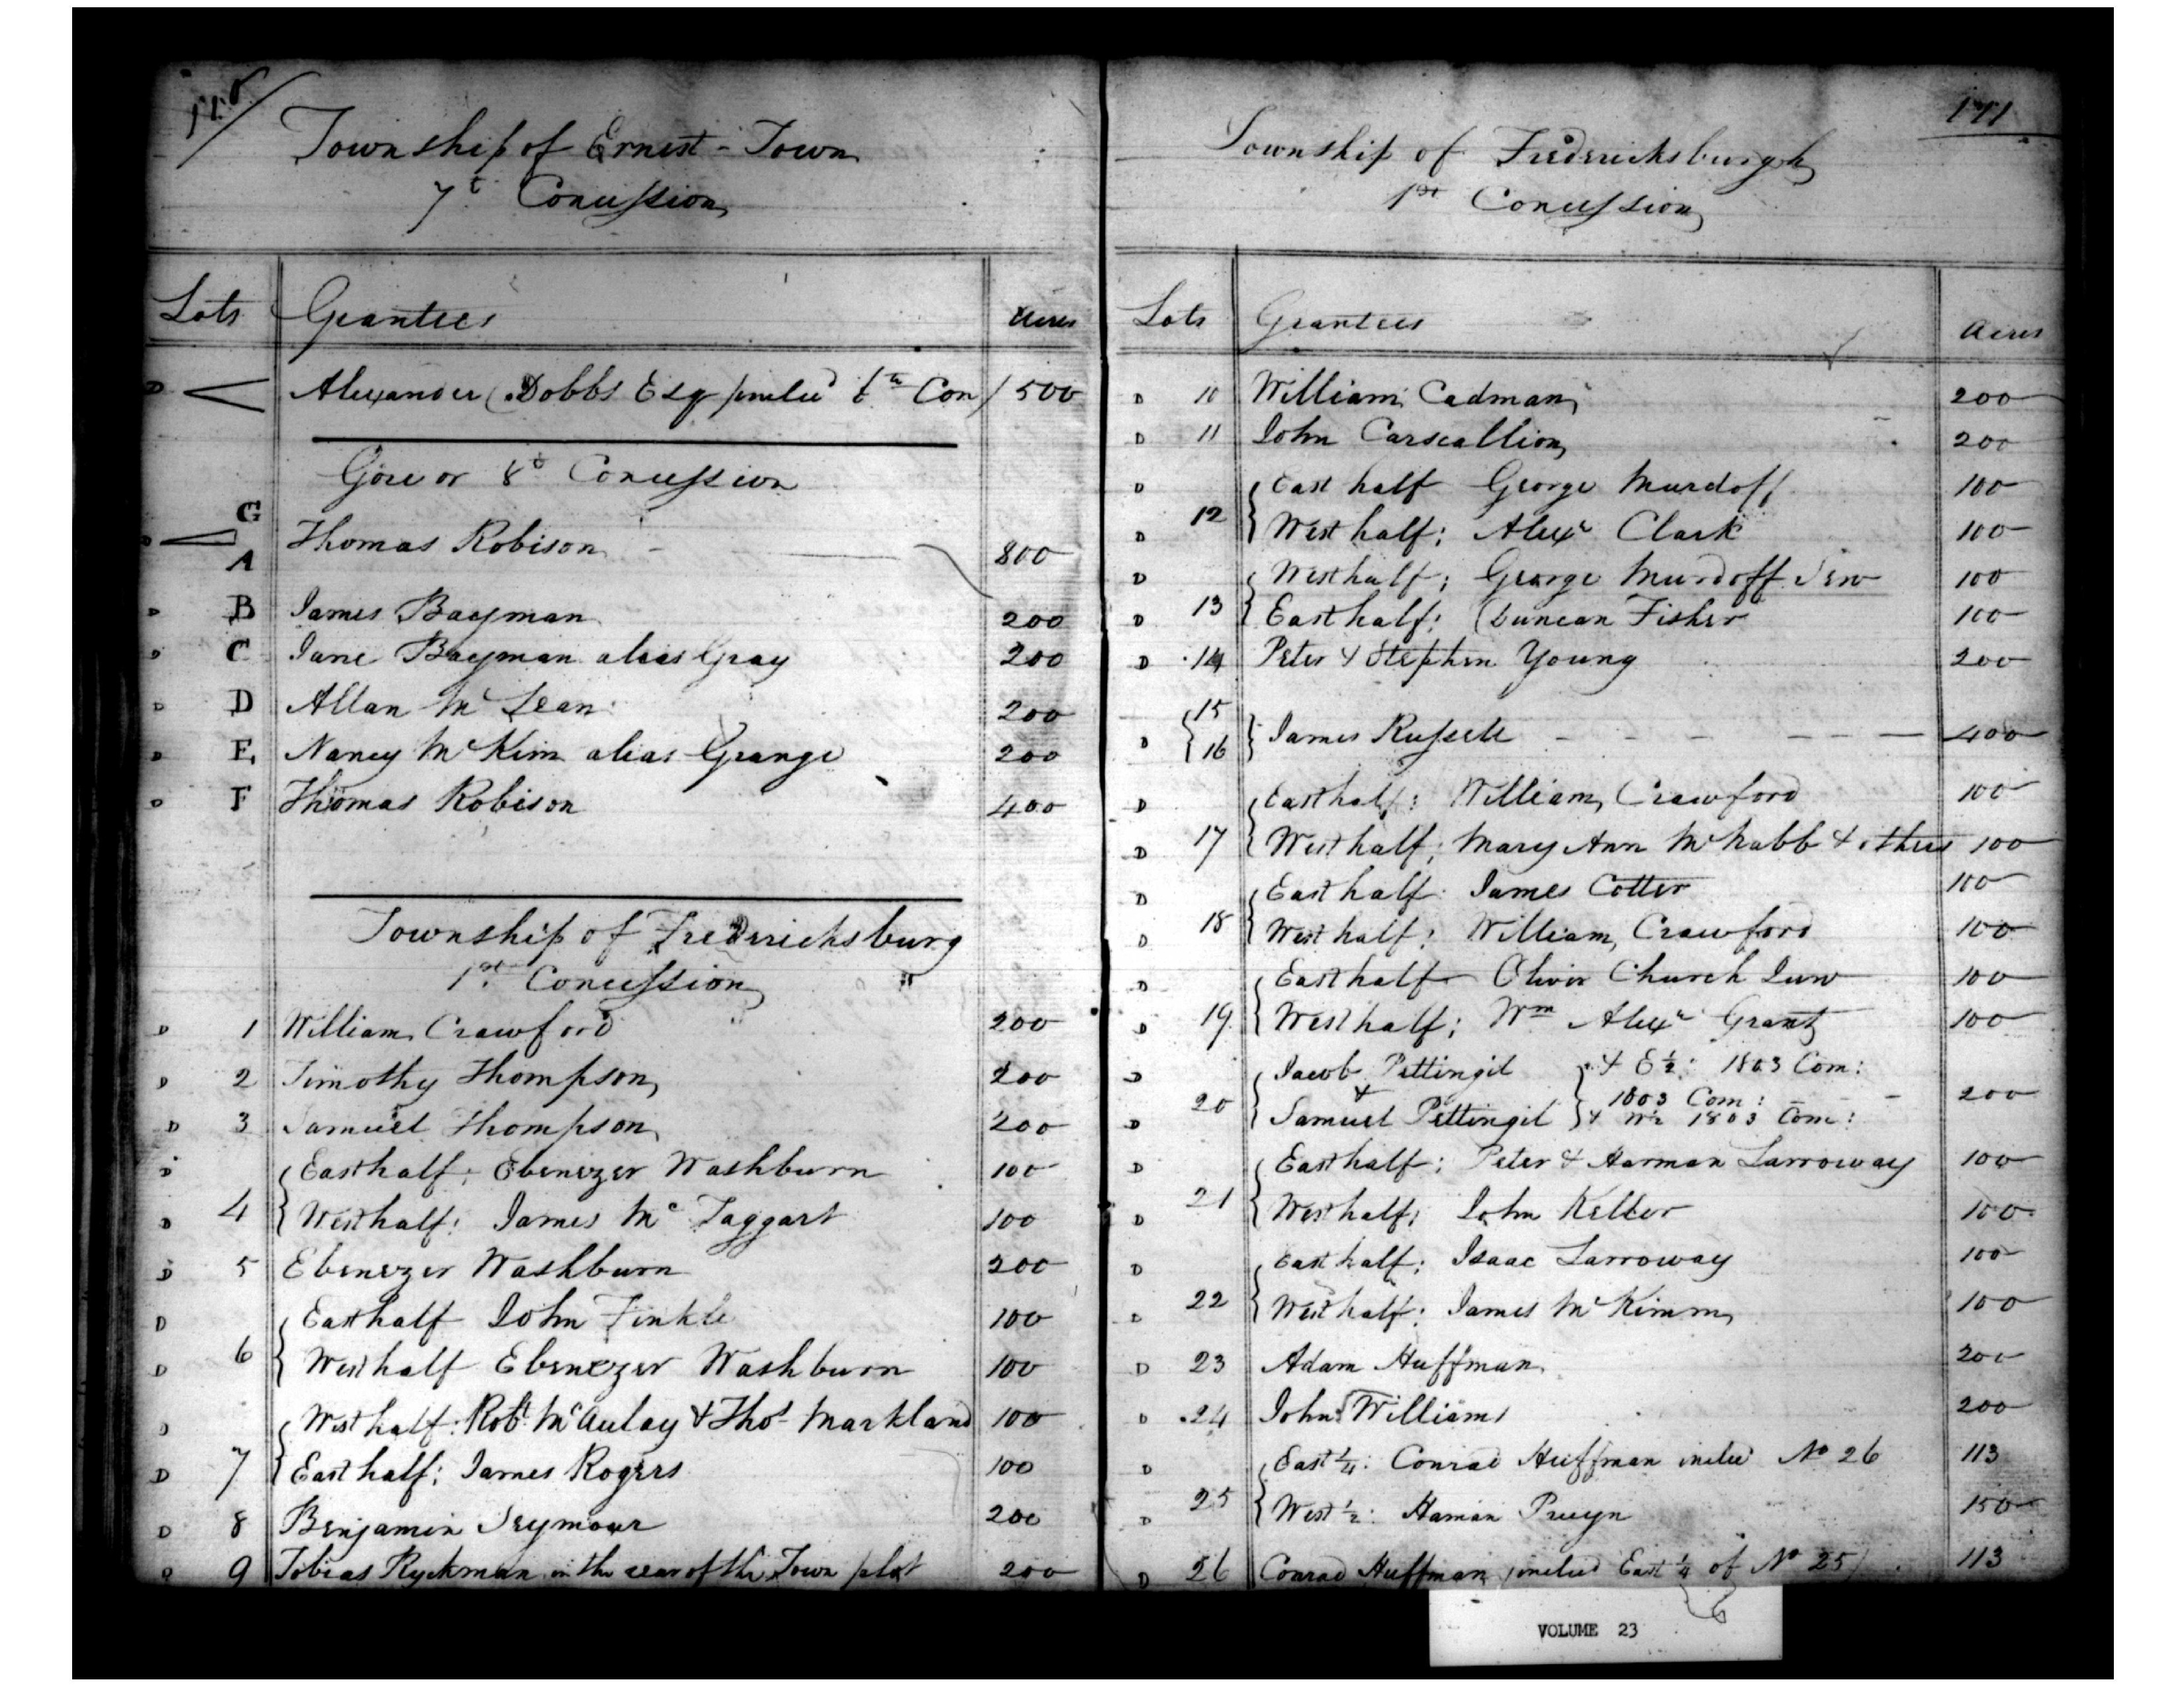 Township of Ernest-Town
7t Concession
Lots Grantees Acres
D Alexander Dobbs Esq /includ 6th Con/ 500
Gore or 8t Concession
G
D Thomas Robison 800
A
D B James Baeyman 200
D C Jane Baeyman alias Gray 200
D D Allan Mc Lean 200
D E Nancy McKim alias Grange 200
D F Thomas Robison 400
Township of Fredericksburg
1st Concession
D 1 William Crawford 200
D 2 Timothy Thompson 200
D 3 Samuel Thompson 200
D Easthalf: Ebenezer Washburn 100
D 4 Westhalf: James Mc Taggart 100
D 5 Ebenezer Washburn 200
D Easthalf John Finkle 100
D 6 Westhalf Ebenezer Washburn 100
D Westhalf: Robt McAulay & Thos Markland 100
D 7 Easthalf: James Rogers 100
D 8 Benjamin Seymour 200
D 9 Tobias Ryckman in the rear of the Town plot 200
171
Township of Fredericksburgh
1st Concession
Lots Grantees Acres
D 10 William Cadman 200
D 11 John Carscallion 200
D East half George Murdoff 100
D 12 West half: Alexr Clark 100
D Westhalf: George Murdoff Senr 100
D 13 Easthalf: Duncan Fisher 100
D 14 Peter & Stephen Young 200
15
D 16 James Russell 400
D Easthalf: William Crawford 100
D 17 Westhalf: Mary Ann McNabb & others 100
D Easthalf: James Cotter 100
D 18 Westhalf: William Crawford 100
D Easthalf Oliver Church Junr 100
D 19 Westhalf: Wm Alexr Grant 100
D Jacob Pettingil & E 1/2: 1803 Com:
20 & 1803 Com: 200
D Samuel Pettingil & W 1/2 1803 Com:
D Easthalf: Peter & Harman Larroway 100
D 21 Westhalf: John Keller 100
D East half: Isaac Larroway 100
D 22 West half: James McKimm 100
D 23 Adam Huffman 200
D 24 John Williams 200
D East 1/4: Conrad Huffman includ No 26 113
D 25 West 1/2: Haman Pruyn 150
D 26 Conrad Huffman /includ East 1/4 of No 25/ 113
VOLUME 23